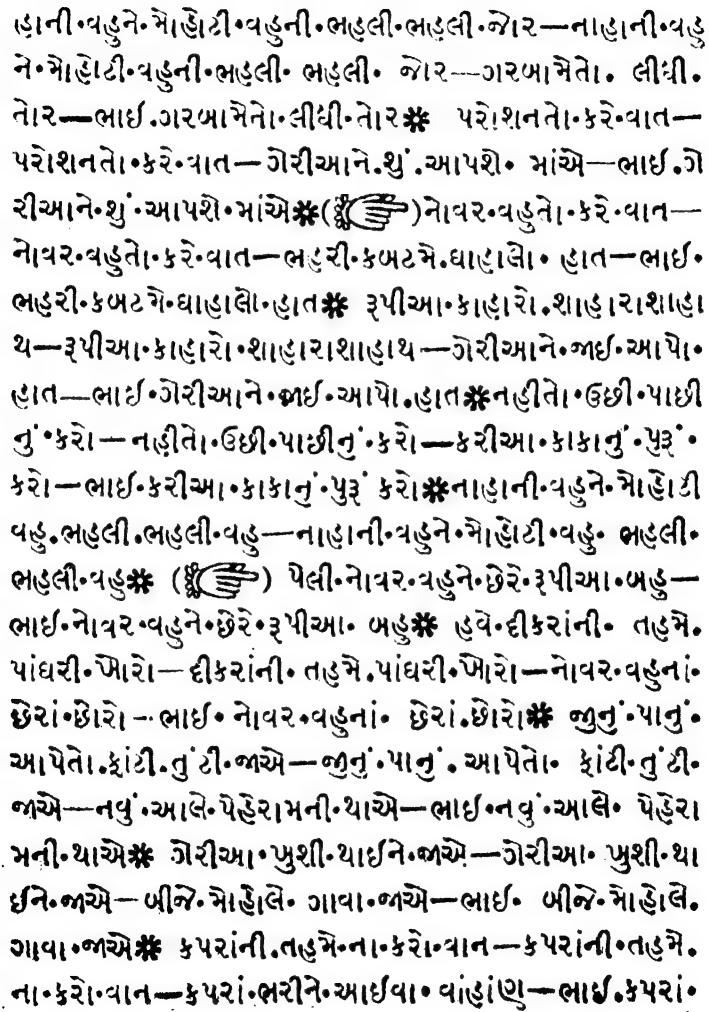 હાની·વહુને·મોહોટી·વહુની·ભહલી·ભહલી·જોર—નાહાની·વહુ
ને·મોહોટી·વહુની·ભહલી· ભહલી· જોર—ગરબામેતો. લીધી.
તોર—ભાઈ.ગરબામેતો.લીધી·તોર✱ પરોશનતો·કરે·વાત—
પરોશનતો·કરે·વાત—ગેરીઆને.શું.આપશે· માંએ—ભાઈ.ગે
રીઆને·શું·આપશે·માંએ✱(☞)નોવર·વહુતો·કરે·વાત—
નોવર·વહુતો·કરે·વાત—ભહરી·કબટમે.ઘાહાલો· હાત—ભાઈ·
ભહરી·કબટમે·ઘાહાલો·હાત✱ રૂપીઆ·કાહારો.શાહારાશાહા
થ—રૂપીઆ·કાહારો·શાહારાશાહાથ—ગેરીઆને·જાઈ·આપો·
હાત—ભાઈ·ગેરીઆને·જાઈ·આપો.હાત✱નહીતો·ઉછી·પાછી
નું·કરો—નહીતો·ઉછી·પાછીનું·કરો—કરીઆ·કાકાનું·પુરૂં·
કરો—ભાઈ·કરીઆ·કાકાનું·પુરૂં કરો✱નાહાની·વહુને·મોહોટી
વહુ.ભહલી.ભહલી·વહુ—નાહાની·વહુને·મોહોટી·વહુ· ભહલી·
ભહલી·વહુ✱ (☞) પેલી·નોવર·વહુને·છેરે·રૂપીઆ·બહુ—
ભાઈ·નોવર·વહુને·છેરે·રૂપીઆ· બહુ✱ હવે·દીકરાંની· તહમે.
પાંઘરી·ખોરો—દીકરાંની· તહમે.પાંઘરી·ખોરો—નોવર·વહુનાં·
છેરાં·છોરો—·ભાઈ·નોવર·વહુનાં· છેરાં.છોરો✱ જીનું·પાનું·
આપેતો.ફાંટી.તુંટી·જાએ—જીનું·પાનું. આપેતો· ફાંટી·તુંટી·
જાએ—નવું·આલે·પેહેરામની·થાએ—ભાઈ·નવું·આલે· પેહેરા
મની·થાએ✱ ગેરીઆ·ખુશી·થાઈને·જાએ—ગેરીઆ· ખુશી·થા
ઈને·જાએ—બીજે·મોહોલે· ગાવા·જાએ—ભાઈ· બીજે·મોહોલે.
ગાવા·જાએ✱ કપરાંની.તહમે·ના·કરો·વાન—કપરાંની·તહમે.
ના·કરો·વાન—કપરાં·ભરીને·આઈવા·વાંહાંણ—ભાઈ.કપરાં·